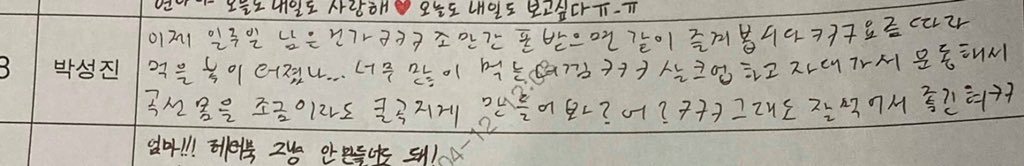 오늘도 내일도 사랑해♥ 오늘도 내일도 보고싶다ㅠ-ㅠ
이제 일주일 남은건가ㅋㅋㅋ 조만간 폰 받으면 같이 즐겨봅시다ㅋㅋㅋ요즘 따라
박성진
먹을 복이 터졌나... 너무 많이 먹는 느낌ㅋㅋㅋ 살크업 하고 자대가서 운동해서
곡선 몸을 조금이라도 굴곡지게 만들어봐? 어?ㅋㅋㅋ 그래도 잘 먹어서 좋긴 혀ㅋㅋ
엄마!!! 헤어북 그냥 안만들어도 돼!
04-12 12:08